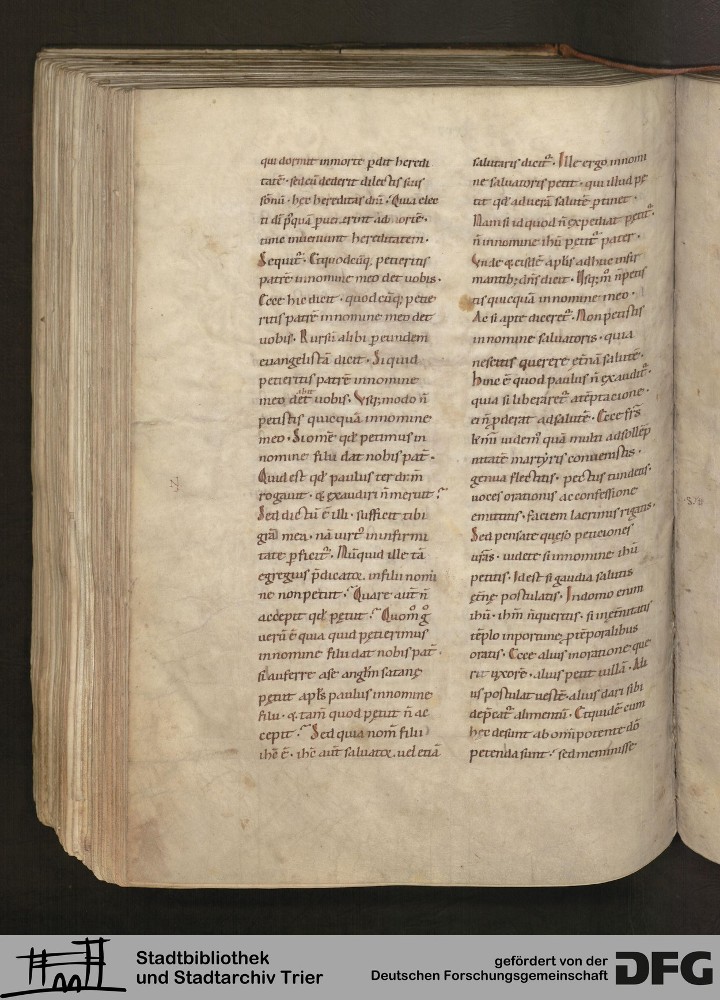 qui dormit inmorte pdit heredi
tatē · sed cū dederit dilectis suis
sōnū · hec hereditas dnī · Quia elec
ti dī pꝰquā puenerint ad mortē ·
tunc inueniunt hereditatem ·
Sequit᷑ · Et quodcūq; petieritis
patrē innomine meo det uobis ·
Ecce hic dicit · quodcūq; petie
ritis patrē innomine meo det
uobis · Rursū alibi p eundem
euangelistā dicit · Si quid
petieritis patrē innomine
meo det uobis · Usq; modo n̄
petistis quicquā innomine
meo · Si omē qd̄ petimus in
nomine filii dat nobis pat̄ ·
Quid est qd̄ paulus ter dn̄m
rogauit · & exaudiri n̄ meruit ·
Sed dictū ē illi · sufficit tibi
gr̄a mea · nā uirtꝰ in infirmi
tate pficit᷑ · Nūquid ille tā
egregius p̄dicator in filii nomi
ne non petiit · Quare aut̄ n̄
accepit qd̄ petiit · Quom̊ g̊
uerū ē quia quid petierimus
innomine filii dat nobis pat̄ ·
si auferre a se anglm̄ satane
petiit apl̄s paulus innomine
filii · & tam̄ quod petiit n̄ ac
cepit · Sed quia nom̄ filii
ih̄c ē · ih̄c aut̄ saluator uel etiā
salutaris dicit᷑ · Ille ergo innomi
ne saluatoris petit · qui illud pe
tit qd̄ ad uerā salutē ptinet ·
Nam si id quod n̄ expediat petit᷑ ·
n̄ innomine ih̄u petit᷑ pater ·
Vnde & eisdē aplis adhuc infir
mantib; dn̄s dicit · Usq; m̊ n̄ petis
tis quicquā innomine meo ·
Ac si apte diceret᷑ · Non petistis
innomine saluatoris · quia
nescitis querere et̄nā salutē ·
Hinc ē quod paulus n̄ exaudit᷑ ·
quia si liberaret᷑ a tēptacione ·
ei n̄ pderat ad salutē · Ecce fr̄s
k̄mi uidem᷒ quā multi ad sollēp
nitatē martyris conuenistis ·
genua flectitis · pectus tunditis ·
uoces orationis ac confessione
emittitis · faciem lacrimis rigatis ·
Sed pensate queso peticiones
urās · uidete si innomine ih̄u
petitis · Id est si gaudia salutis
et̄ne postulatis · Indomo enim
ih̄u · ih̄m n̄ queritis · si in et̄nitatis
tēplo inportune p tēporalibus
oratis · Ecce alius inoratione que
rit uxorē · alius petit uillā · Ali
us postulat uestē · alius dari sibi
dep̄cat᷑ alimentū · Et quidē cum
hec desunt ab omīpotente dō
petenda sunt · sed meminisse
Stadtbibliothek
und Stadtarchiv Trier
gefördert von der
Deutschen Forschungsgemeinschaft
DFG